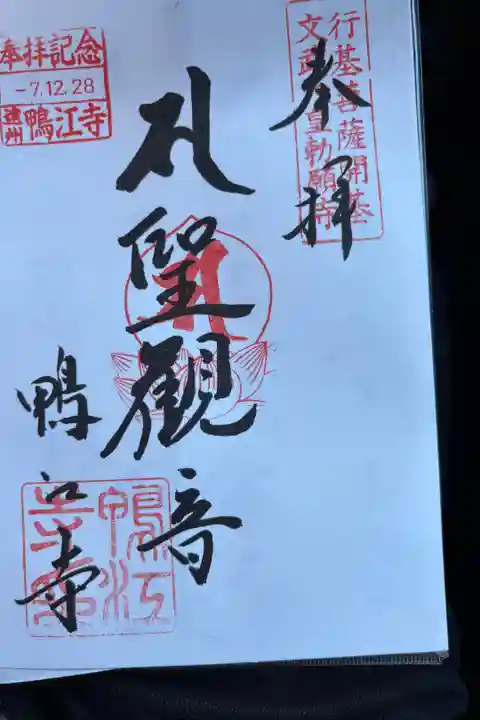 行基菩薩開基
文武天皇勅願寺
奉拝
聖観音
鴨江寺
奉拝記念
-7.12.28
遠州 鴨江寺